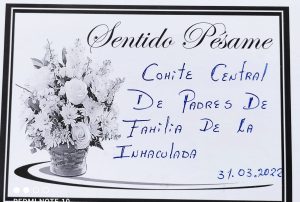 Sentido Pésame
Comite Central
De Padres De
Familia De La
Inmaculada
31.03.2022
REDMI NOTE 10